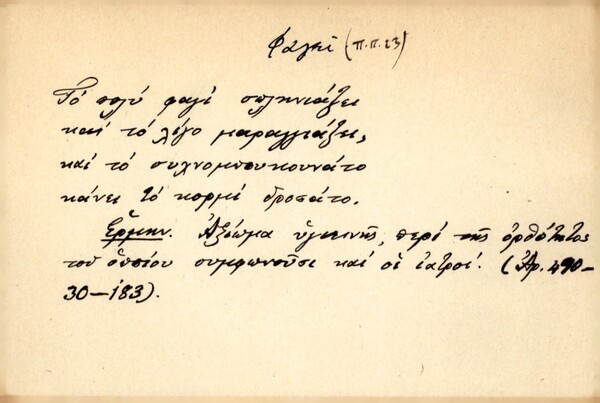 Φαγεῖ (π.π. 23)
Τό πολύ φαγί σπληνιάζει
καί τό λίγο μαραγγιάζει,
καί τό συχνομπουκουνάτο
κάνει τό κορμί δροσάτο.
Ἑρμην. Ἀξίωμα ὑγιεινῆς, περί τῆς ὀρθότητος
τοῦ ὁποίου συμφωνοῦσι καί οἱ ἰατροί. (Ἀρ. 490-
30-183).